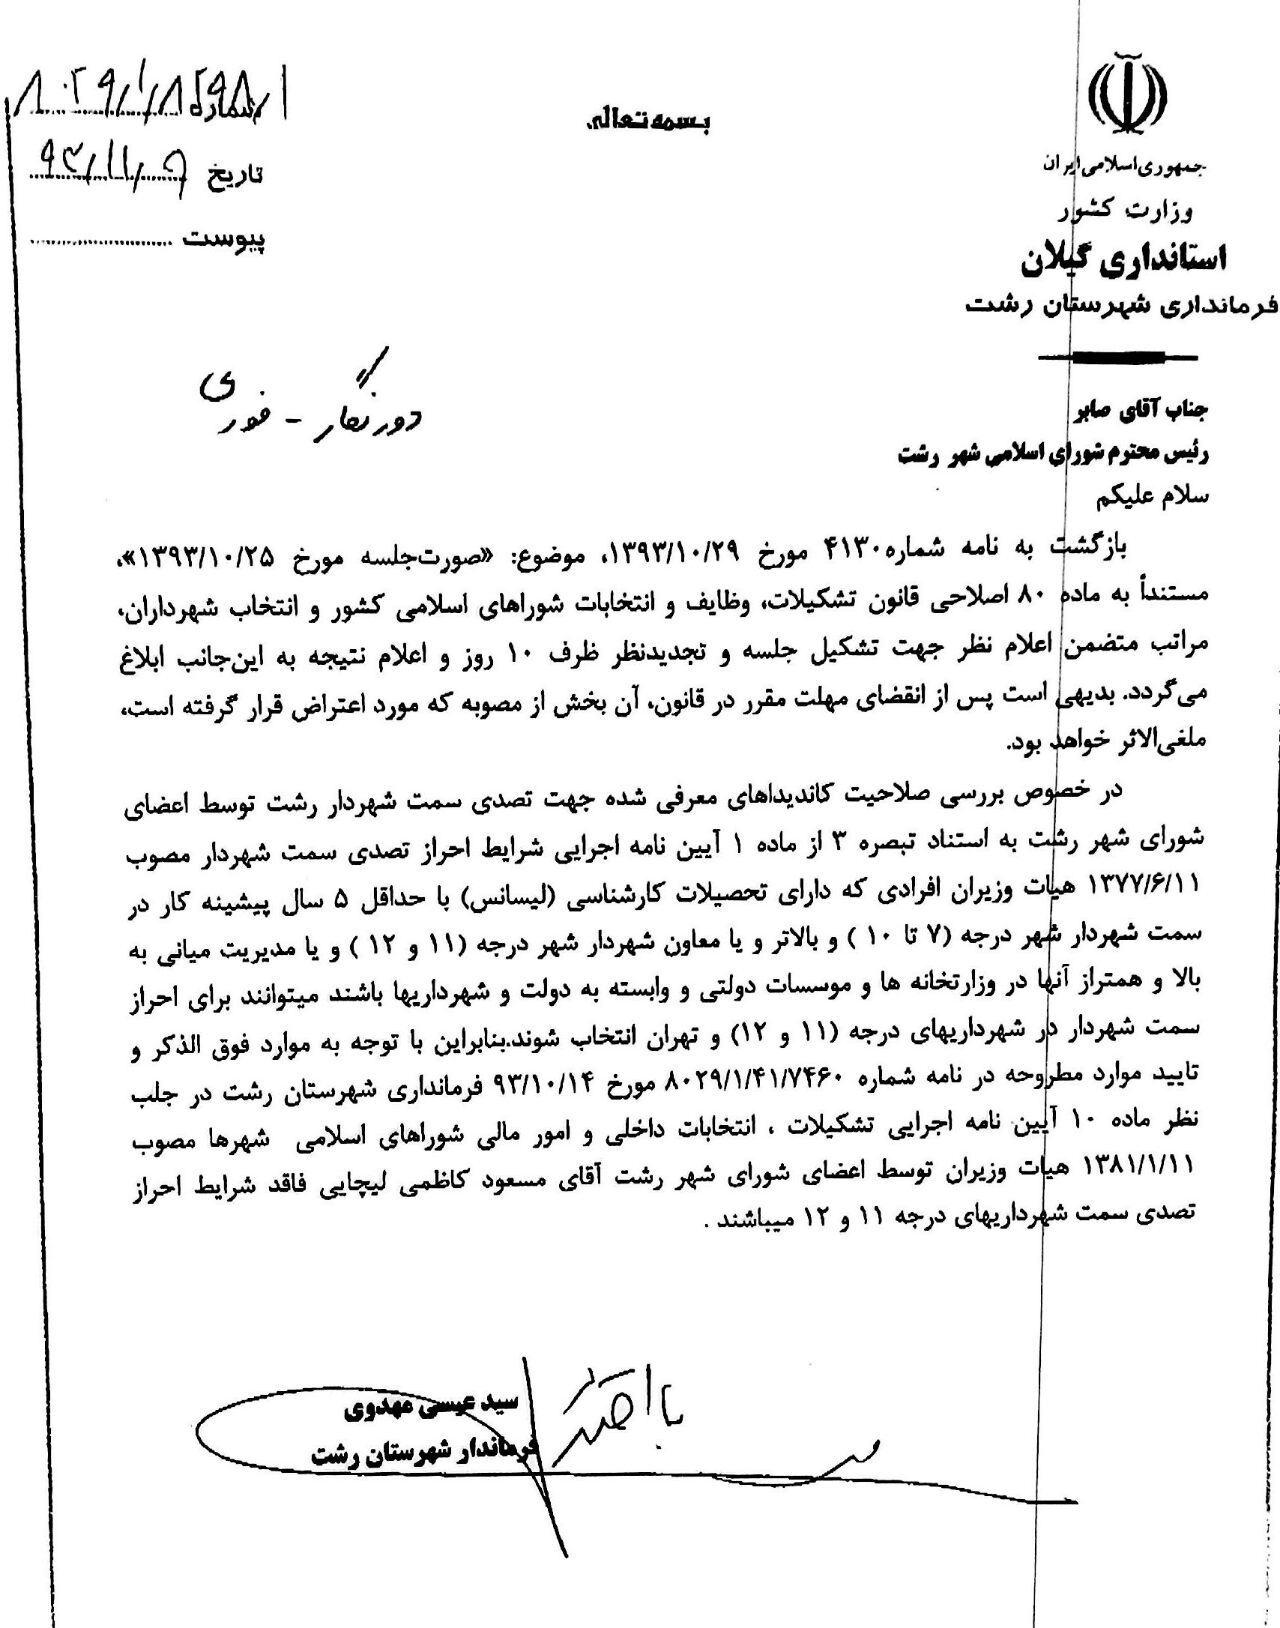 بسمه تعالی
جمهوری اسلامی ایران
وزارت کشور
استانداری گیلان
فرمانداری شهرستان رشت
شماره
تاریخ ۹۳/۱۱/۰۶
پیوست
دورنگار - فوری
جناب آقای صابر
رئیس محترم شورای اسلامی شهر رشت
سلام علیکم
بازگشت به نامه شماره ۴۱۳۰ مورخ ۱۳۹۳/۱۰/۲۹، موضوع: «صورت‌جلسه مورخ ۱۳۹۳/۱۰/۲۵»،
مستنداً به ماده ۸۰ اصلاحی قانون تشکیلات، وظایف و انتخابات شوراهای اسلامی کشور و انتخاب شهرداران،
مراتب متضمن اعلام نظر جهت تشکیل جلسه و تجدیدنظر ظرف ۱۰ روز و اعلام نتیجه به این‌جانب ابلاغ
می‌گردد. بدیهی است پس از انقضای مهلت مقرر در قانون، آن بخش از مصوبه که مورد اعتراض قرار گرفته است،
ملغی‌الاثر خواهد بود.
در خصوص بررسی صلاحیت کاندیداهای معرفی شده جهت تصدی سمت شهردار رشت توسط اعضای
شورای شهر رشت به استناد تبصره ۳ از ماده ۱ آیین نامه اجرایی شرایط احراز تصدی سمت شهردار مصوب
۱۳۷۷/۶/۱۱ هیات وزیران افرادی که دارای تحصیلات کارشناسی (لیسانس) با حداقل ۵ سال پیشینه کار در
سمت شهردار شهر درجه (۷ تا ۱۰ ) و بالاتر و یا معاون شهردار شهر درجه (۱۱ و ۱۲ ) و یا مدیریت میانی به
بالا و همتراز آنها در وزارتخانه ها و موسسات دولتی و وابسته به دولت و شهرداریها باشند میتوانند برای احراز
سمت شهردار در شهرداریهای درجه (۱۱ و ۱۲) و تهران انتخاب شوند.بنابراین با توجه به موارد فوق الذکر و
تایید موارد مطروحه در نامه شماره ۸۰۲۹/۱/۴۱/۷۴۶۰ مورخ ۹۳/۱۰/۱۴ فرمانداری شهرستان رشت در جلب
نظر ماده ۱۰ آیین نامه اجرایی تشکیلات ، انتخابات داخلی و امور مالی شوراهای اسلامی شهرها مصوب
۱۳۸۱/۱/۱۱ هیات وزیران توسط اعضای شورای شهر رشت آقای مسعود کاظمی لیچایی فاقد شرایط احراز
تصدی سمت شهرداریهای درجه ۱۱ و ۱۲ میباشند .
سید عیسی مهدوی
فرماندار شهرستان رشت